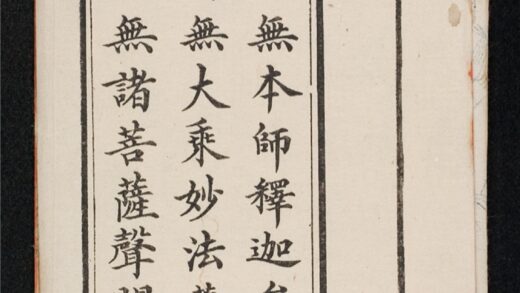 無本師釋迦
無大乘妙法
無諸菩薩聲